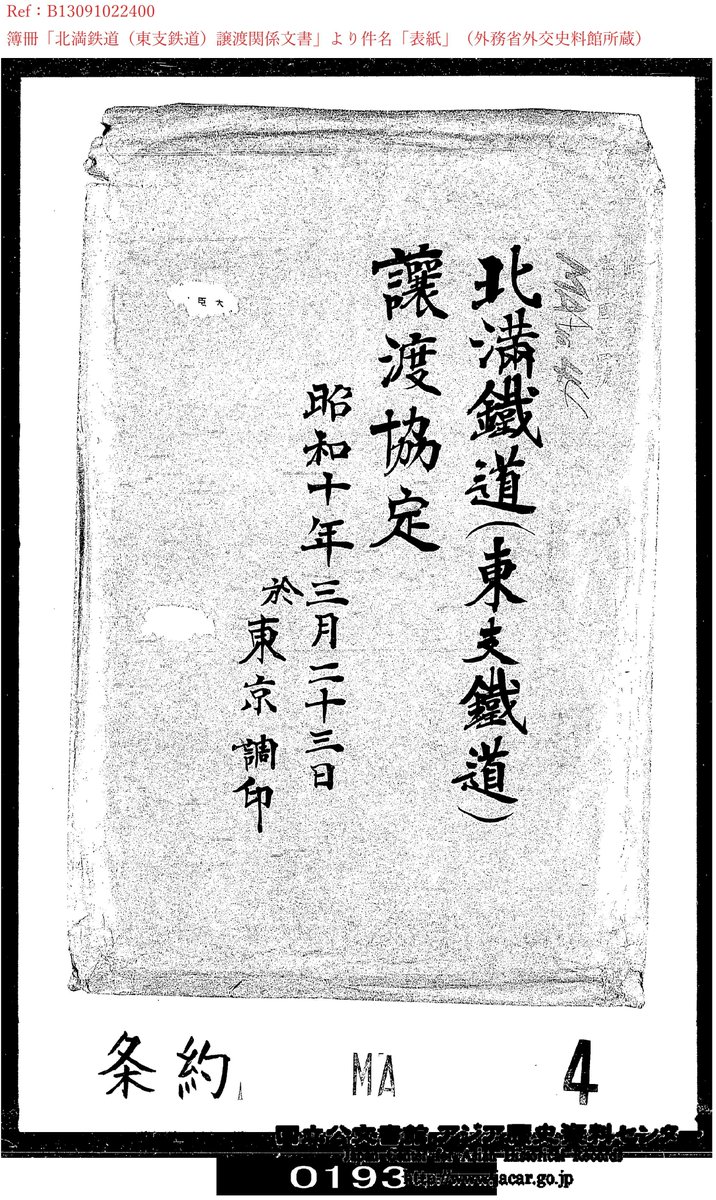 Ref：B13091022400
簿冊「北満鉄道（東支鉄道）譲渡関係文書」より件名「表紙」（外務省外交史料館所蔵）
北滿鐵道(東支鐵道)
讓渡協定
昭和十年三月二十三日
於東京調印
大臣
条約
MA
4
国立公文書館 アジア歴史資料センター
Japan Center for Asian Historical Records
http://www.jacar.go.jp
0193